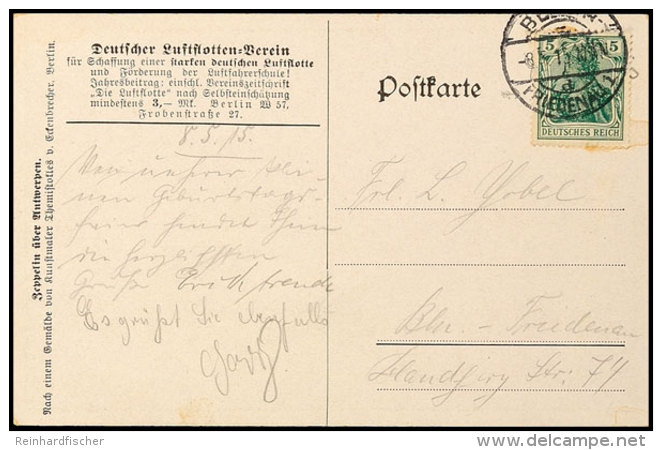 Deutscher Luftflotten-Verein
für Schaffung einer starken deutschen Luftflotte
und Förderung der Luftfahrerschule!
Jahresbeitrag: einschl. Vereinszeitschrift
„Die Luftflotte" nach Selbsteinschätzung
mindestens 3,— Mk. Berlin W 57,
Frobenstraße 27.
Zeppelin über Antwerpen.
Nach einem Gemälde von Kunstmaler Themistokles v. Eckenbrecher, Berlin.
Postkarte
BERLIN-
FRIEDENAU 1
5 5
DEUTSCHES REICH
8.5.15.
Von unserer
Geburtstags-
feier sendet Ihnen
die herzlichsten
Grüße Erich
Es grüßt Sie ebenfalls
Frl. L.
Bln. - Friedenau
Str. 74
Reinhardfischer
delcampe.net